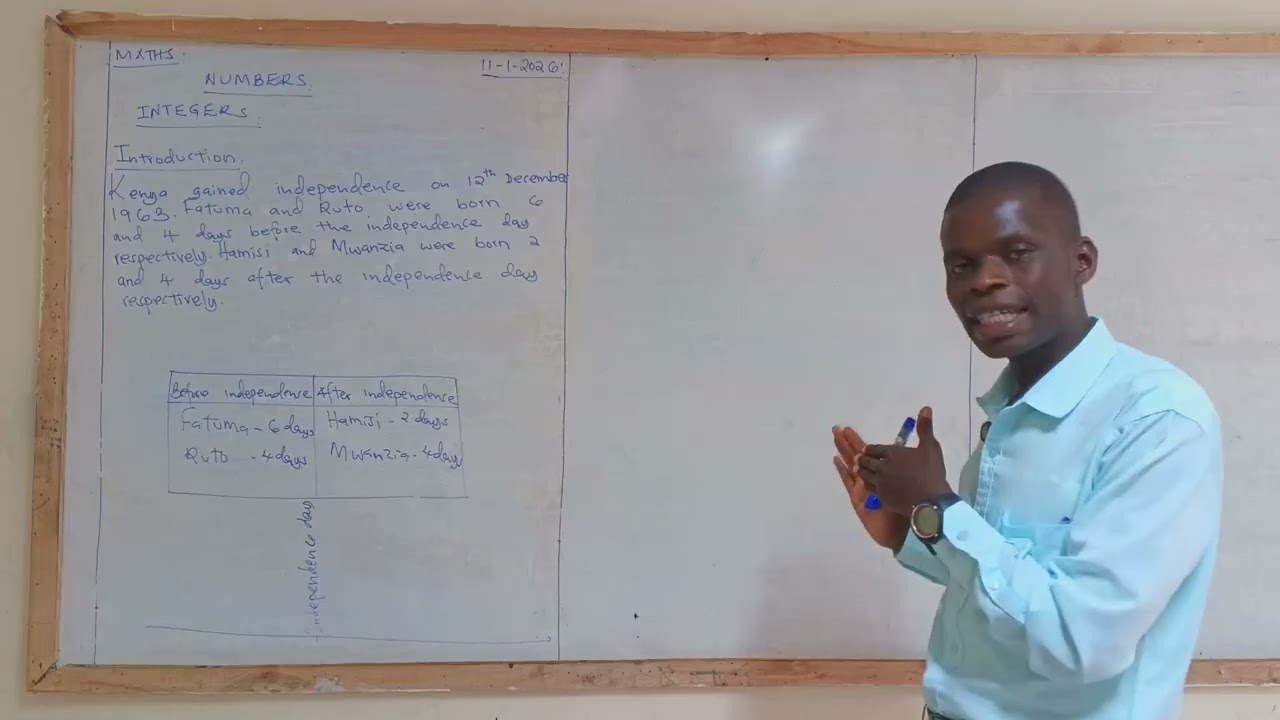 MATHS.
11-1-2026.
NUMBERS.
INTEGERS.
Introduction.
Kenya gained independence on 12th December
1963. Fatuma and Ruto were born 6
and 4 days before the independence day
respectively. Hamisi and Mwanzia were born 2
and 4 days after the independence day
respectively.
Before independence After independence
Fatuma - 6 days Hamisi - 2 days
Ruto - 4 days Mwanzia - 4 days
independence day